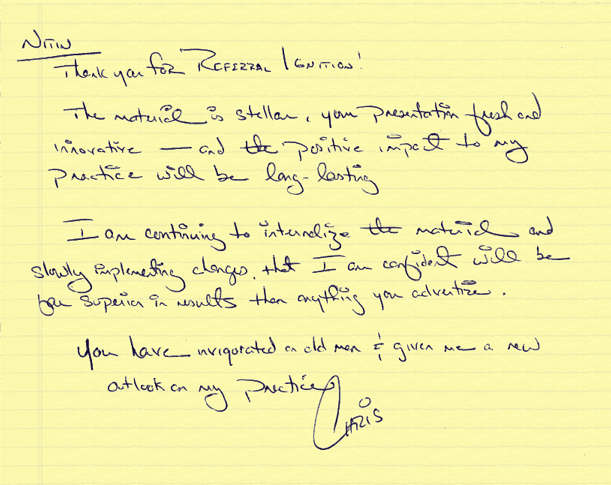 NITIN
Thank you for REFERRAL IGNITION!
The material is stellar, your presentation fresh and
innovative — and the positive impact to my
practice will be long-lasting
I am continuing to internalize the material and
slowly implementing changes, that I am confident will be
far superior in results than anything you advertize.
You have invigorated an old man & given me a new
outlook on my practice
CHRIS